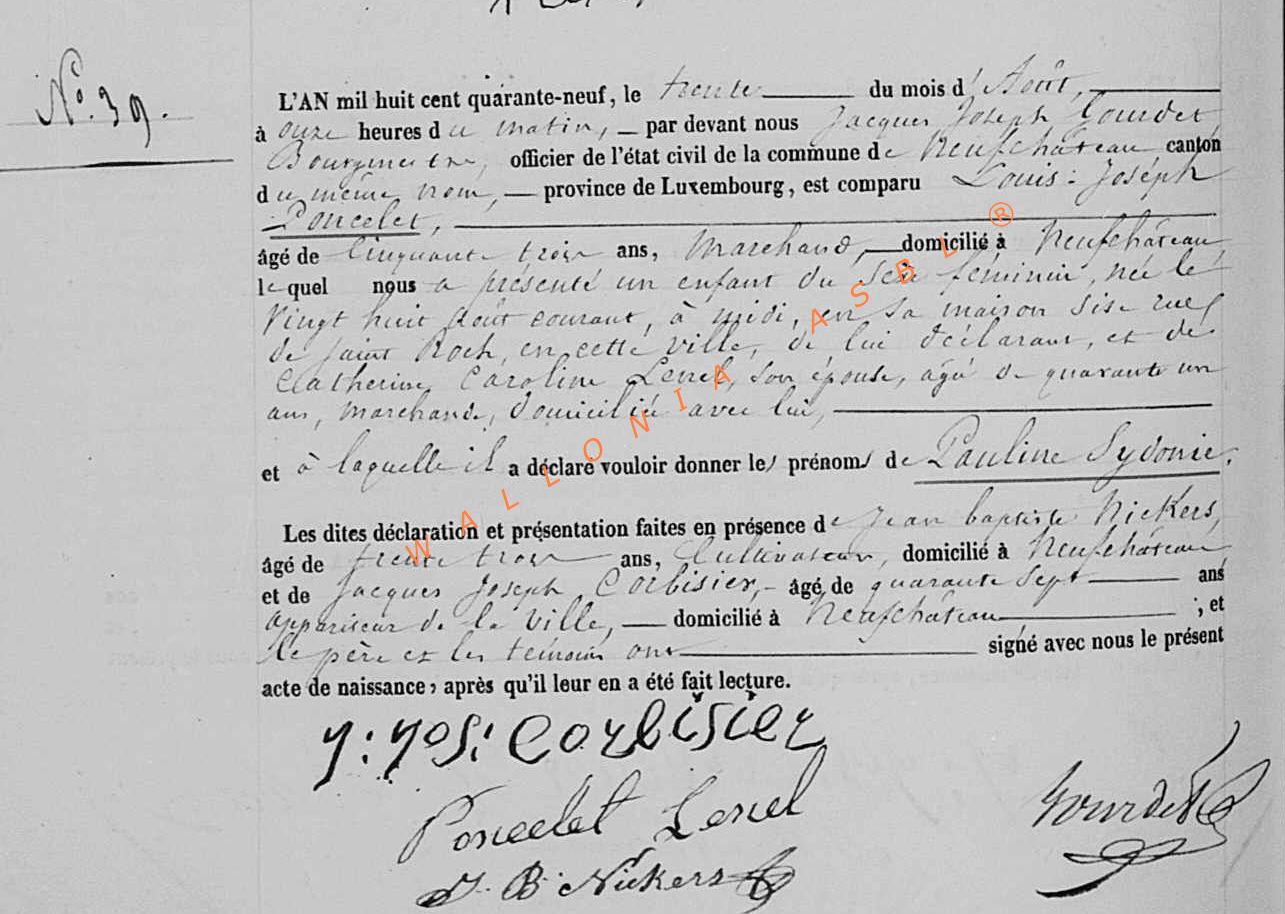 N° 39.
L'AN mil huit cent quarante-neuf, le trente du mois d' Août,
à onze heures du matin, — par devant nous Jacques Joseph Gourdet
Bourgmestre, officier de l'état civil de la commune de Neufchâteau canton
du même nom, — province de Luxembourg, est comparu Louis Joséph
Poncelet,
âgé de Cinquante trois ans, Marchand, domicilié à Neufchâteau
lequel nous a présenté un enfant du sexe féminin, née le
Vingt huit Août courant, à midi, en sa maison sise rue
de Saint Roch, en cette ville, de lui déclarant, et de
Catherine Caroline Lenel, son épouse, agée de quarante un
ans, Marchande, domiciliée avec lui,
et à laquelle il a déclaré vouloir donner les prénoms de Pauline Sydonie.
Les dites déclaration et présentation faites en présence de Jean baptiste Nickers,
âgé de trente trois ans, Cultivateur, domicilié à Neufchâteau
et de Jacques Joseph Corbisier, - âgé de quarante sept ans
appariteur de la ville, — domicilié à Neufchâteau ; et
le père et les témoins ont signé avec nous le présent
acte de naissance, après qu'il leur en a été fait lecture.
J: Jos: Corbisier
Poncelet Lenel
Gourdet
J. B. Nickers
WALLONIA ASBL ®